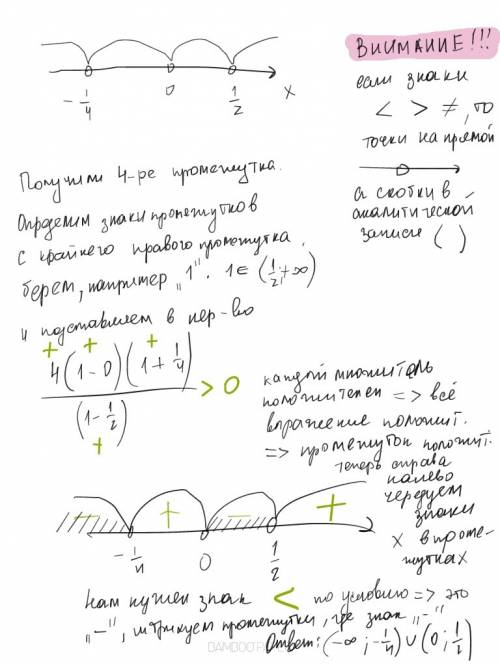 ВНИМАНИЕ!!!
если знаки
< > ≠, то
точки на прямой
а скобки в
аналитической
записи ( )
-1/4 0 1/2 x
Получили 4-ре промежутка.
Определим знаки промежутков
с крайнего правого промежутка.
берем, например „1". 1 ∈ (1/2; +∞)
и подставляем в нер-во
+ + +
4(1-0)(1+1/4)
> 0
(1-1/2)
+
каждый множитель
положителен => всё
выражение положит.
=> промежуток положит.
теперь справа
налево
чередуем
знаки
в проме-
жутках
- + - +
-1/4 0 1/2 x
нам нужен знак < по условию => это
„-", штрихуем промежутки, где знак „-"
Ответ: (-∞; -1/4) ∪ (0; 1/2)